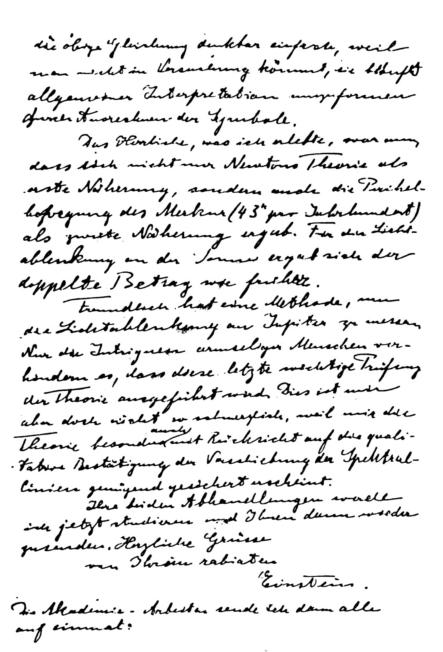 die obige Gleichung denkbar einfach, weil
man nicht in Versuchung kommt, sie behufs
allgemeiner Interpretation umzuformen
durch Ausrechnen der Symbole.
Das Herrliche, was ich erlebte, war nun,
dass sich nicht nur Newtons Theorie als
erste Näherung, sondern auch die Perihel-
bewegung des Merkur (43" pro Jahrhundert)
als zweite Näherung ergab. Für die Licht-
ablenkung an der Sonne ergab sich der
doppelte Betrag wie früher.
Freundlich hat eine Methode, um
die Lichtablenkung an Jupiter zu messen.
Nur die Intriguen armseliger Menschen ver-
hindern es, dass diese letzte wichtige Prüfung
der Theorie ausgeführt wird. Dies ist mir
aber doch nicht so schmerzlich, weil mir die
Theorie besonders auch mit Rücksicht auf die quali-
tative Bestätigung der Verschiebung der Spektral-
linien genügend gesichert erscheint.
Ihre beiden Abhandlungen werde
ich jetzt studieren und Ihnen dann wieder
zusenden. Herzliche Grüsse
von Ihrem rabiaten
Einstein.
Die Akademie-Arbeiten sende ich dann alle
auf einmal.